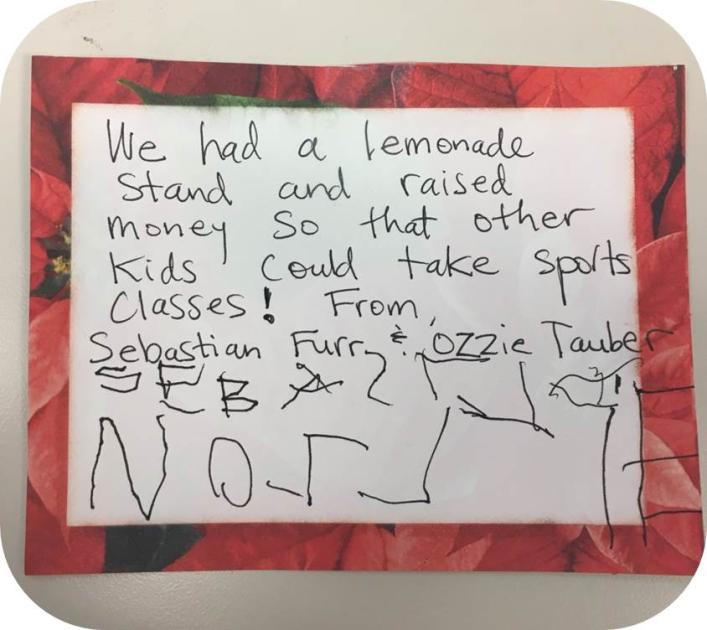 We had a lemonade
Stand and raised
money So that other
Kids Could take Sports
Classes! From,
Sebastian Furr & OZZie Tauber
SEBAS